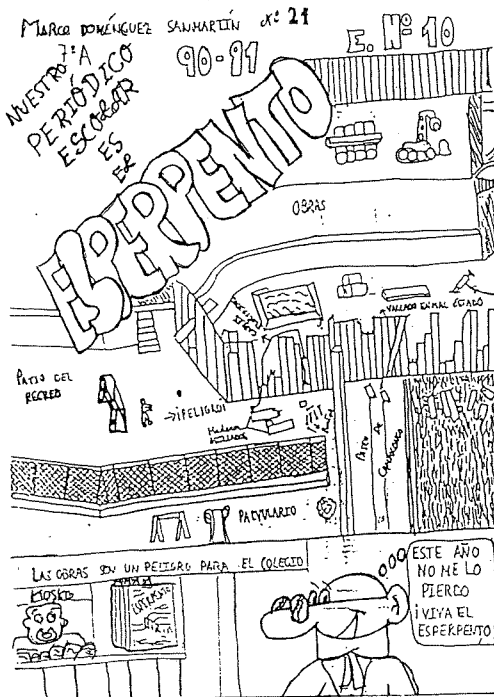 MARCO DOMÉNGUEZ SANMARTÍN Nº 21
7º A
90-91
E. Nº 10
NUESTRO
PERIÓDICO
ESCOLAR
ES
EL
ESPERPENTO
OBRAS
VALLADO EN MAL ESTADO
PATIO DEL
RECREO
→¡PELIGRO!
Madera
PATIO DE
PARVULARIO
LAS OBRAS SON UN PELIGRO PARA EL COLEGIO
KIOSKO
ESTE AÑO
NO ME LO
PIERDO
¡VIVA EL
ESPERPENTO!